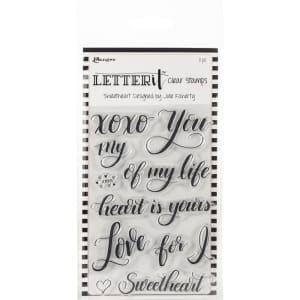 Ranger
11 pc
LETTER it Clear Stamps
Sweetheart Designed by Julie Faherty
xoxo You
my
of my life
heart is yours
Love for I
Sweetheart